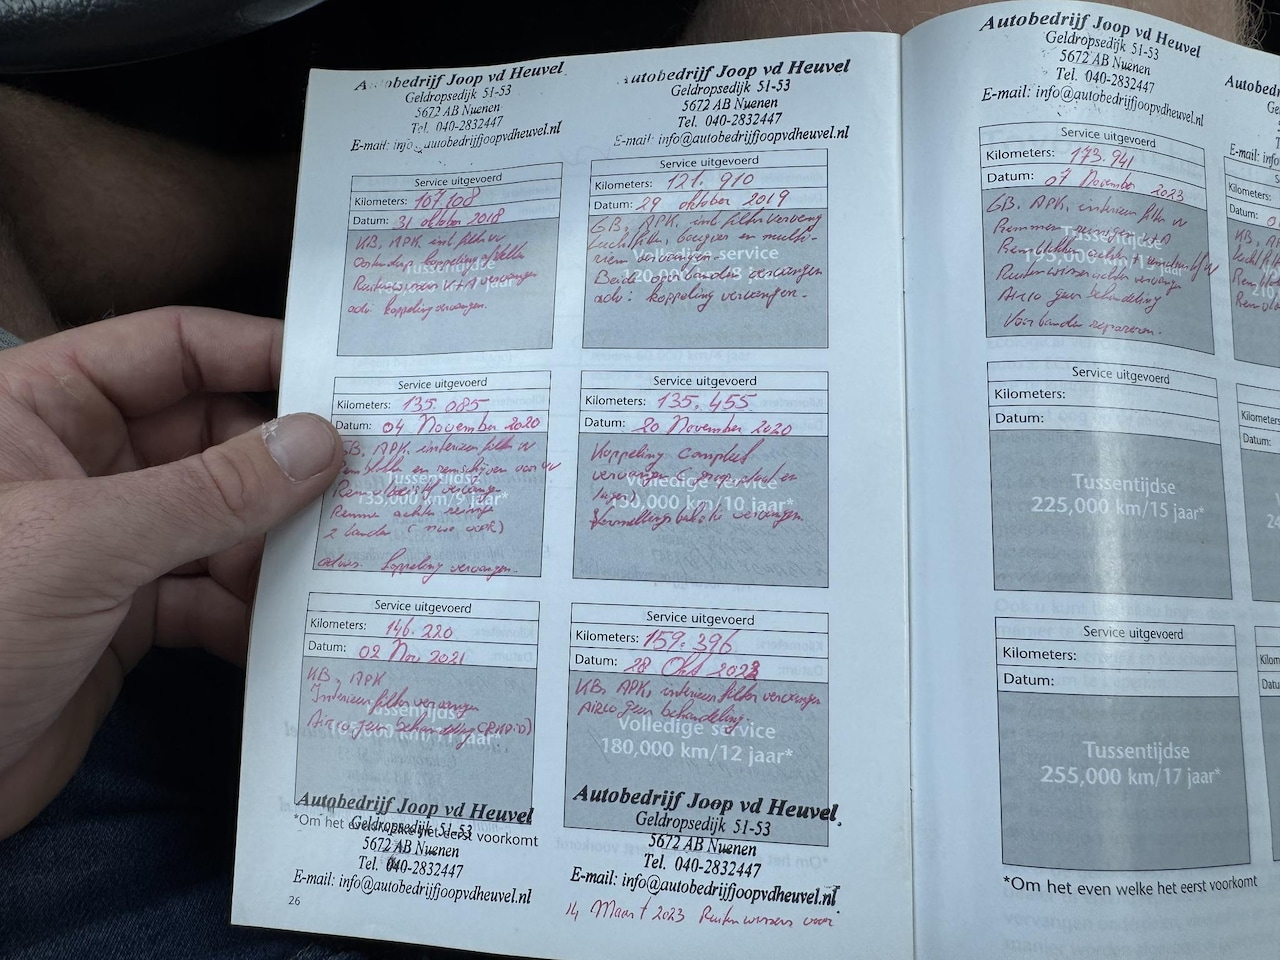 Autobedrijf Joop vd Heuvel
Geldropsedijk 51-53
5672 AB Nuenen
Tel. 040-2832447
E-mail: info@autobedrijfjoopvdheuvel.nl
Service uitgevoerd
Kilometers: 107.108
Datum: 31 oktober 2018
KB, APK, int filter vv
koppeling
Ruitenwissers V+A vervangen
adv: koppeling vervangen.
Tussentijdse
jaar*
Autobedrijf Joop vd Heuvel
Geldropsedijk 51-53
5672 AB Nuenen
Tel. 040-2832447
E-mail: info@autobedrijfjoopvdheuvel.nl
Service uitgevoerd
Kilometers: 121.910
Datum: 29 oktober 2019
GB, APK, int filter vervang
luchtfilter, bougies en multi-
riem vervangen.
Beide vervangen
adv: koppeling vervangen.
Volledige service
120,000 km/8 jaar*
Service uitgevoerd
Kilometers: 135.085
Datum: 04 November 2020
GB, APK, interieur filter vv
Remblokken en remschijven voor vv
Remvloeistof vervangen
Remmen achter reinigen
2 banden (nieuw voor)
advies: koppeling vervangen.
Tussentijdse
135,000 km/9 jaar*
Service uitgevoerd
Kilometers: 135.455
Datum: 20 November 2020
Koppeling compleet
vervangen (groep, plaat en
lager)
Versnellingsbakolie vervangen.
Volledige service
150,000 km/10 jaar*
Service uitgevoerd
Kilometers: 146.220
Datum: 02 Nov 2021
KB, APK
Interieurfilter vervangen
Airco geur behandeling
Tussentijdse
165,000 km/11 jaar*
Service uitgevoerd
Kilometers: 159.396
Datum: 28 Okt 2022
KB, APK, interieur filter vervangen
Airco geur behandeling
Volledige service
180,000 km/12 jaar*
Autobedrijf Joop vd Heuvel
Geldropsedijk 51-53
5672 AB Nuenen
Tel. 040-2832447
E-mail: info@autobedrijfjoopvdheuvel.nl
*Om het even welke het eerst voorkomt
26
Autobedrijf Joop vd Heuvel
Geldropsedijk 51-53
5672 AB Nuenen
Tel. 040-2832447
E-mail: info@autobedrijfjoopvdheuvel.nl
*Om
14 Maart 2023 Ruitenwissers voor
Autobedrijf Joop vd Heuvel
Geldropsedijk 51-53
5672 AB Nuenen
Tel. 040-2832447
E-mail: info@autobedrijfjoopvdheuvel.nl
Service uitgevoerd
Kilometers: 173.941
Datum: 07 November 2023
GB, APK, interieur filter vv
Remmen reinigen V+A
Remblokken achter + vv
Ruitenwisser achter vervangen
Airco geur behandeling
Voor banden repareren.
Tussentijdse
195,000 km/13 jaar*
Kilometers:
Datum:
KB,
Service uitgevoerd
Kilometers:
Datum:
Tussentijdse
225,000 km/15 jaar*
Kilometers:
Datum:
Service uitgevoerd
Kilometers:
Datum:
Tussentijdse
255,000 km/17 jaar*
*Om het even welke het eerst voorkomt